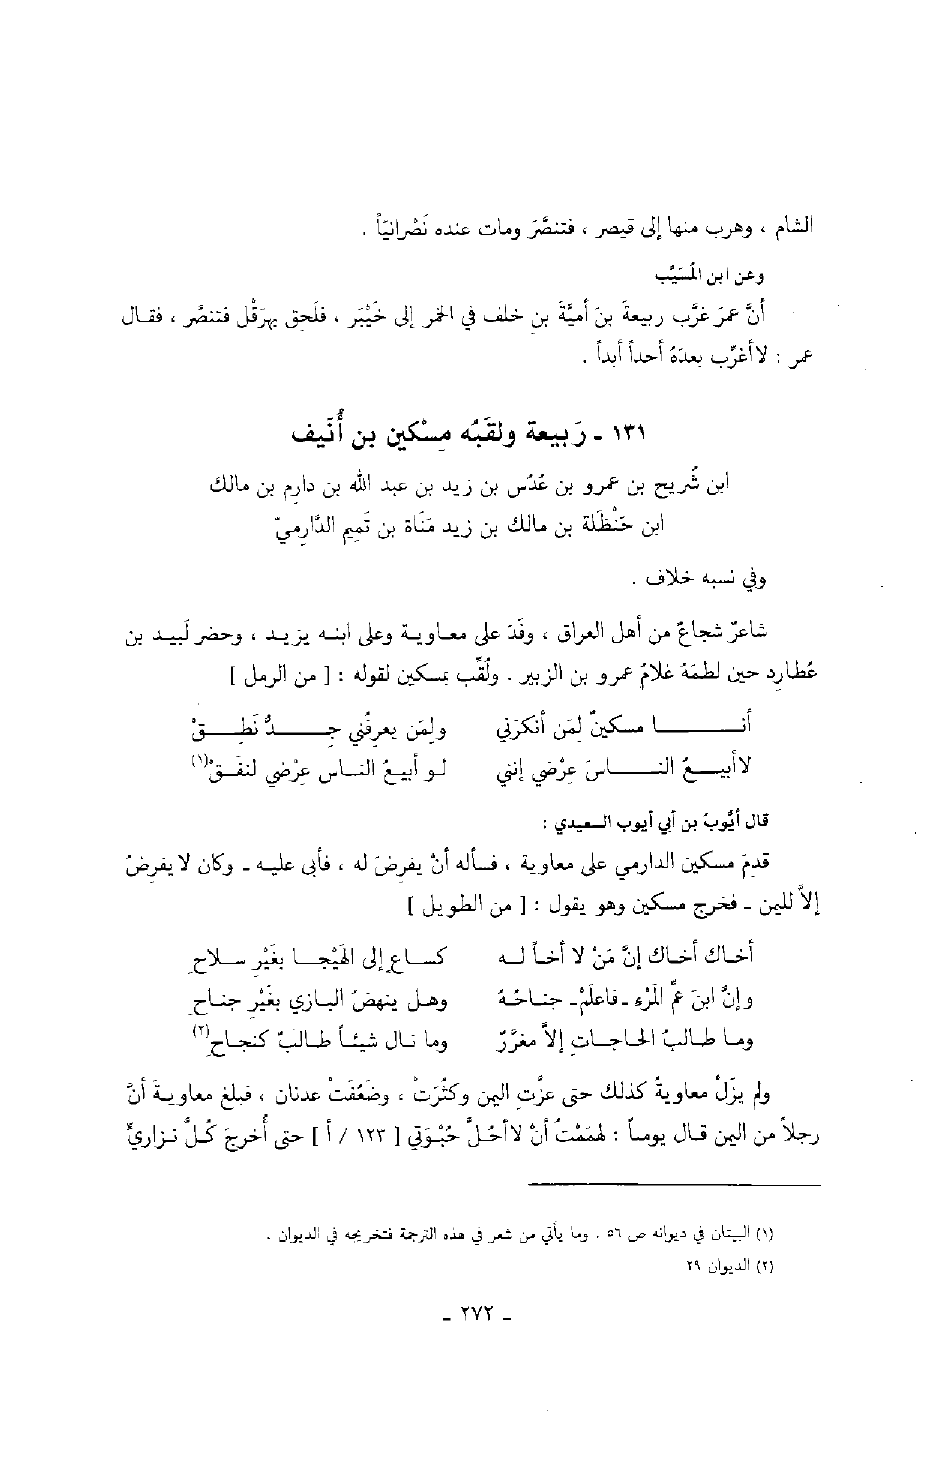 الشام ، وهرب منها إلى قيصر ، فتنصَّر ومات عنده نَصْرانيّاً .
وعن ابن المُسَيَّب
أنَّ عمرَ غرَّب ربيعةَ بنَ أميَّة بنِ خلف في الخمر إلى خَيْبَر ، فلَحِق بهِرَقْل فتنصَّر ، فقال
عمر : لا أغرِّب بعدَهُ أحداً أبداً .
١٣١ ـ رَبيعة ولقَبُه مِسْكين بن أُنَيف
ابن شُريح بن عمرو بن عُدُس بن زيد بن عبد الله بن دارِم بن مالك
ابن حَنْظَلة بن مالك بن زيد مَنَاة بن تَميم الدَّارِميّ
وفي نسبه خلاف .
شاعرٌ شجاعٌ من أهل العراق ، وفَدَ على معاوية وعلى ابنه يزيد ، وحضر لَبيد بن
عُطارِد حين لطمَهُ غلامُ عمرو بن الزبير . ولُقِّب بمسكين لقوله : [ من الرمل ]
أنا مسكينٌ لمَن أنكرَني ولِمَن يعرِفُني جِدُّ نَطِقْ
لا أبيعُ الناسَ عِرْضي إنني لو أبيعُ الناس عِرْضي لنفَقْ(١)
قال أيُّوبُ بن أبي أيوب السعيدي :
قدِمَ مسكين الدارمي على معاوية ، فسأله أنْ يفرِضَ له ، فأبى عليه ـ وكان لا يفرِضُ
إلاَّ لليمن ـ فخرج مسكين وهو يقول : [ من الطويل ]
أخاك أخاك إنَّ مَنْ لا أخاً له كساعٍ إلى الهَيْجا بغَيْرِ سلاحِ
وإنَّ ابنَ عمِّ المَرْءِ ـ فاعلَمْ ـ جناحُهُ وهل ينهضُ البازي بغَيْرِ جناحِ
وما طالبُ الحاجاتِ إلاَّ مغرَّرٌ وما نال شيئاً طالبٌ كنجاحِ(٢)
ولم يزَلْ معاويةُ كذلك حتى عزَّتِ اليمن وكثُرَتْ ، وضَعُفَتْ عدنان ، فبلغ معاويةَ أنَّ
رجلاً من اليمن قال يوماً : لهمَمْتُ أنْ لا أحُلَّ حُبْوَتي [ ١٢٣ / أ ] حتى أُخرِجَ كُلَّ نزاريٍّ
(١) البيتان في ديوانه ص ٥٦ . وما يأتي من شعر في هذه الترجمة فتخريجه في الديوان .
(٢) الديوان ٢٩
ـ ٢٧٢ ـ